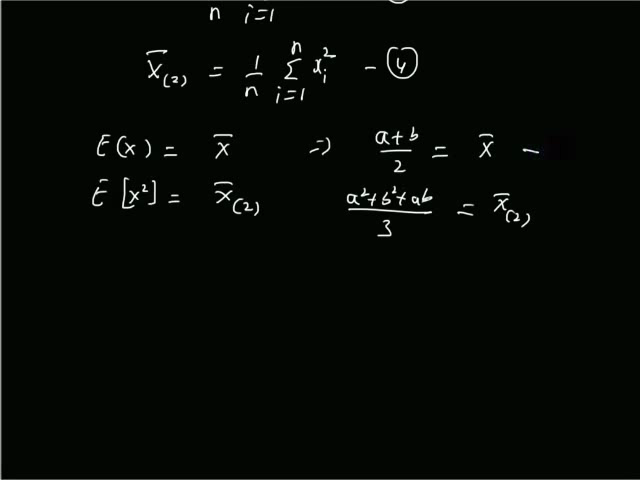 n i=1
X̄(2) = 1/n n∑i=1 xi² - (4)
E(x) = x̄ => a+b/2 = x̄ -
E[x²] = x̄(2) a²+b²+ab/3 = x̄(2)